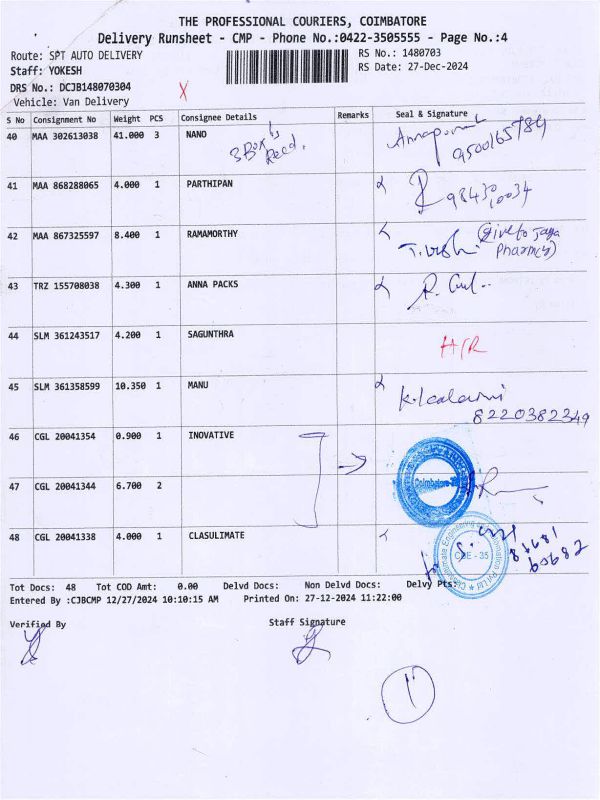 THE PROFESSIONAL COURIERS, COIMBATORE
Delivery Runsheet - CMP - Phone No.:0422-3505555 - Page No.:4
Route: SPT AUTO DELIVERY RS No.: 1480703
Staff: YOKESH RS Date: 27-Dec-2024
DRS No.: DCJB148070304 X
Vehicle: Van Delivery
S No Consignment No Weight PCS Consignee Details Remarks Seal & Signature
40 MAA 302613038 41.000 3 NANO
3 Box's Recd. 9500165784
41 MAA 868288065 4.000 1 PARTHIPAN
42 MAA 867325597 8.400 1 RAMAMORTHY (Give to Jaya
Pharmcy)
43 TRZ 155708038 4.300 1 ANNA PACKS
44 SLM 361243517 4.200 1 SAGUNTHRA
H/R
45 SLM 361358599 10.350 1 MANU
8220382349
46 CGL 20041354 0.900 1 INOVATIVE
47 CGL 20041344 6.700 2 Coimbatore
48 CGL 20041338 4.000 1 CLASULIMATE
CBE - 35
Tot Docs: 48 Tot COD Amt: 0.00 Delvd Docs: Non Delvd Docs: Delvy Pts:
Entered By :CJBCMP 12/27/2024 10:10:15 AM Printed On: 27-12-2024 11:22:00
Verified By Staff Signature
1